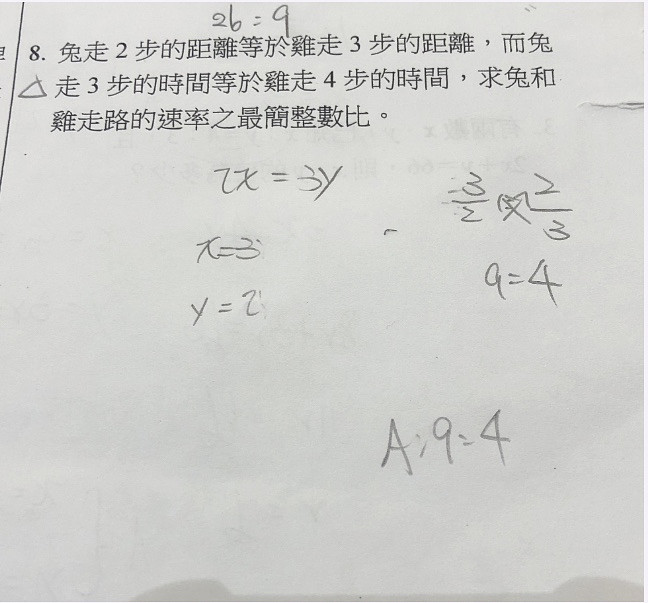 26:9
8. 兔走 2 步的距離等於雞走 3 步的距離，而兔
走 3 步的時間等於雞走 4 步的時間，求兔和
雞走路的速率之最簡整數比。
2x=3y
x=3
y=2
3/2 2/3
9=4
A:9:4